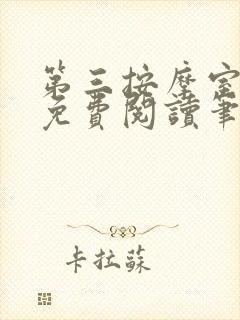 第三按摩室
免費閱讀筆
卡拉蘇